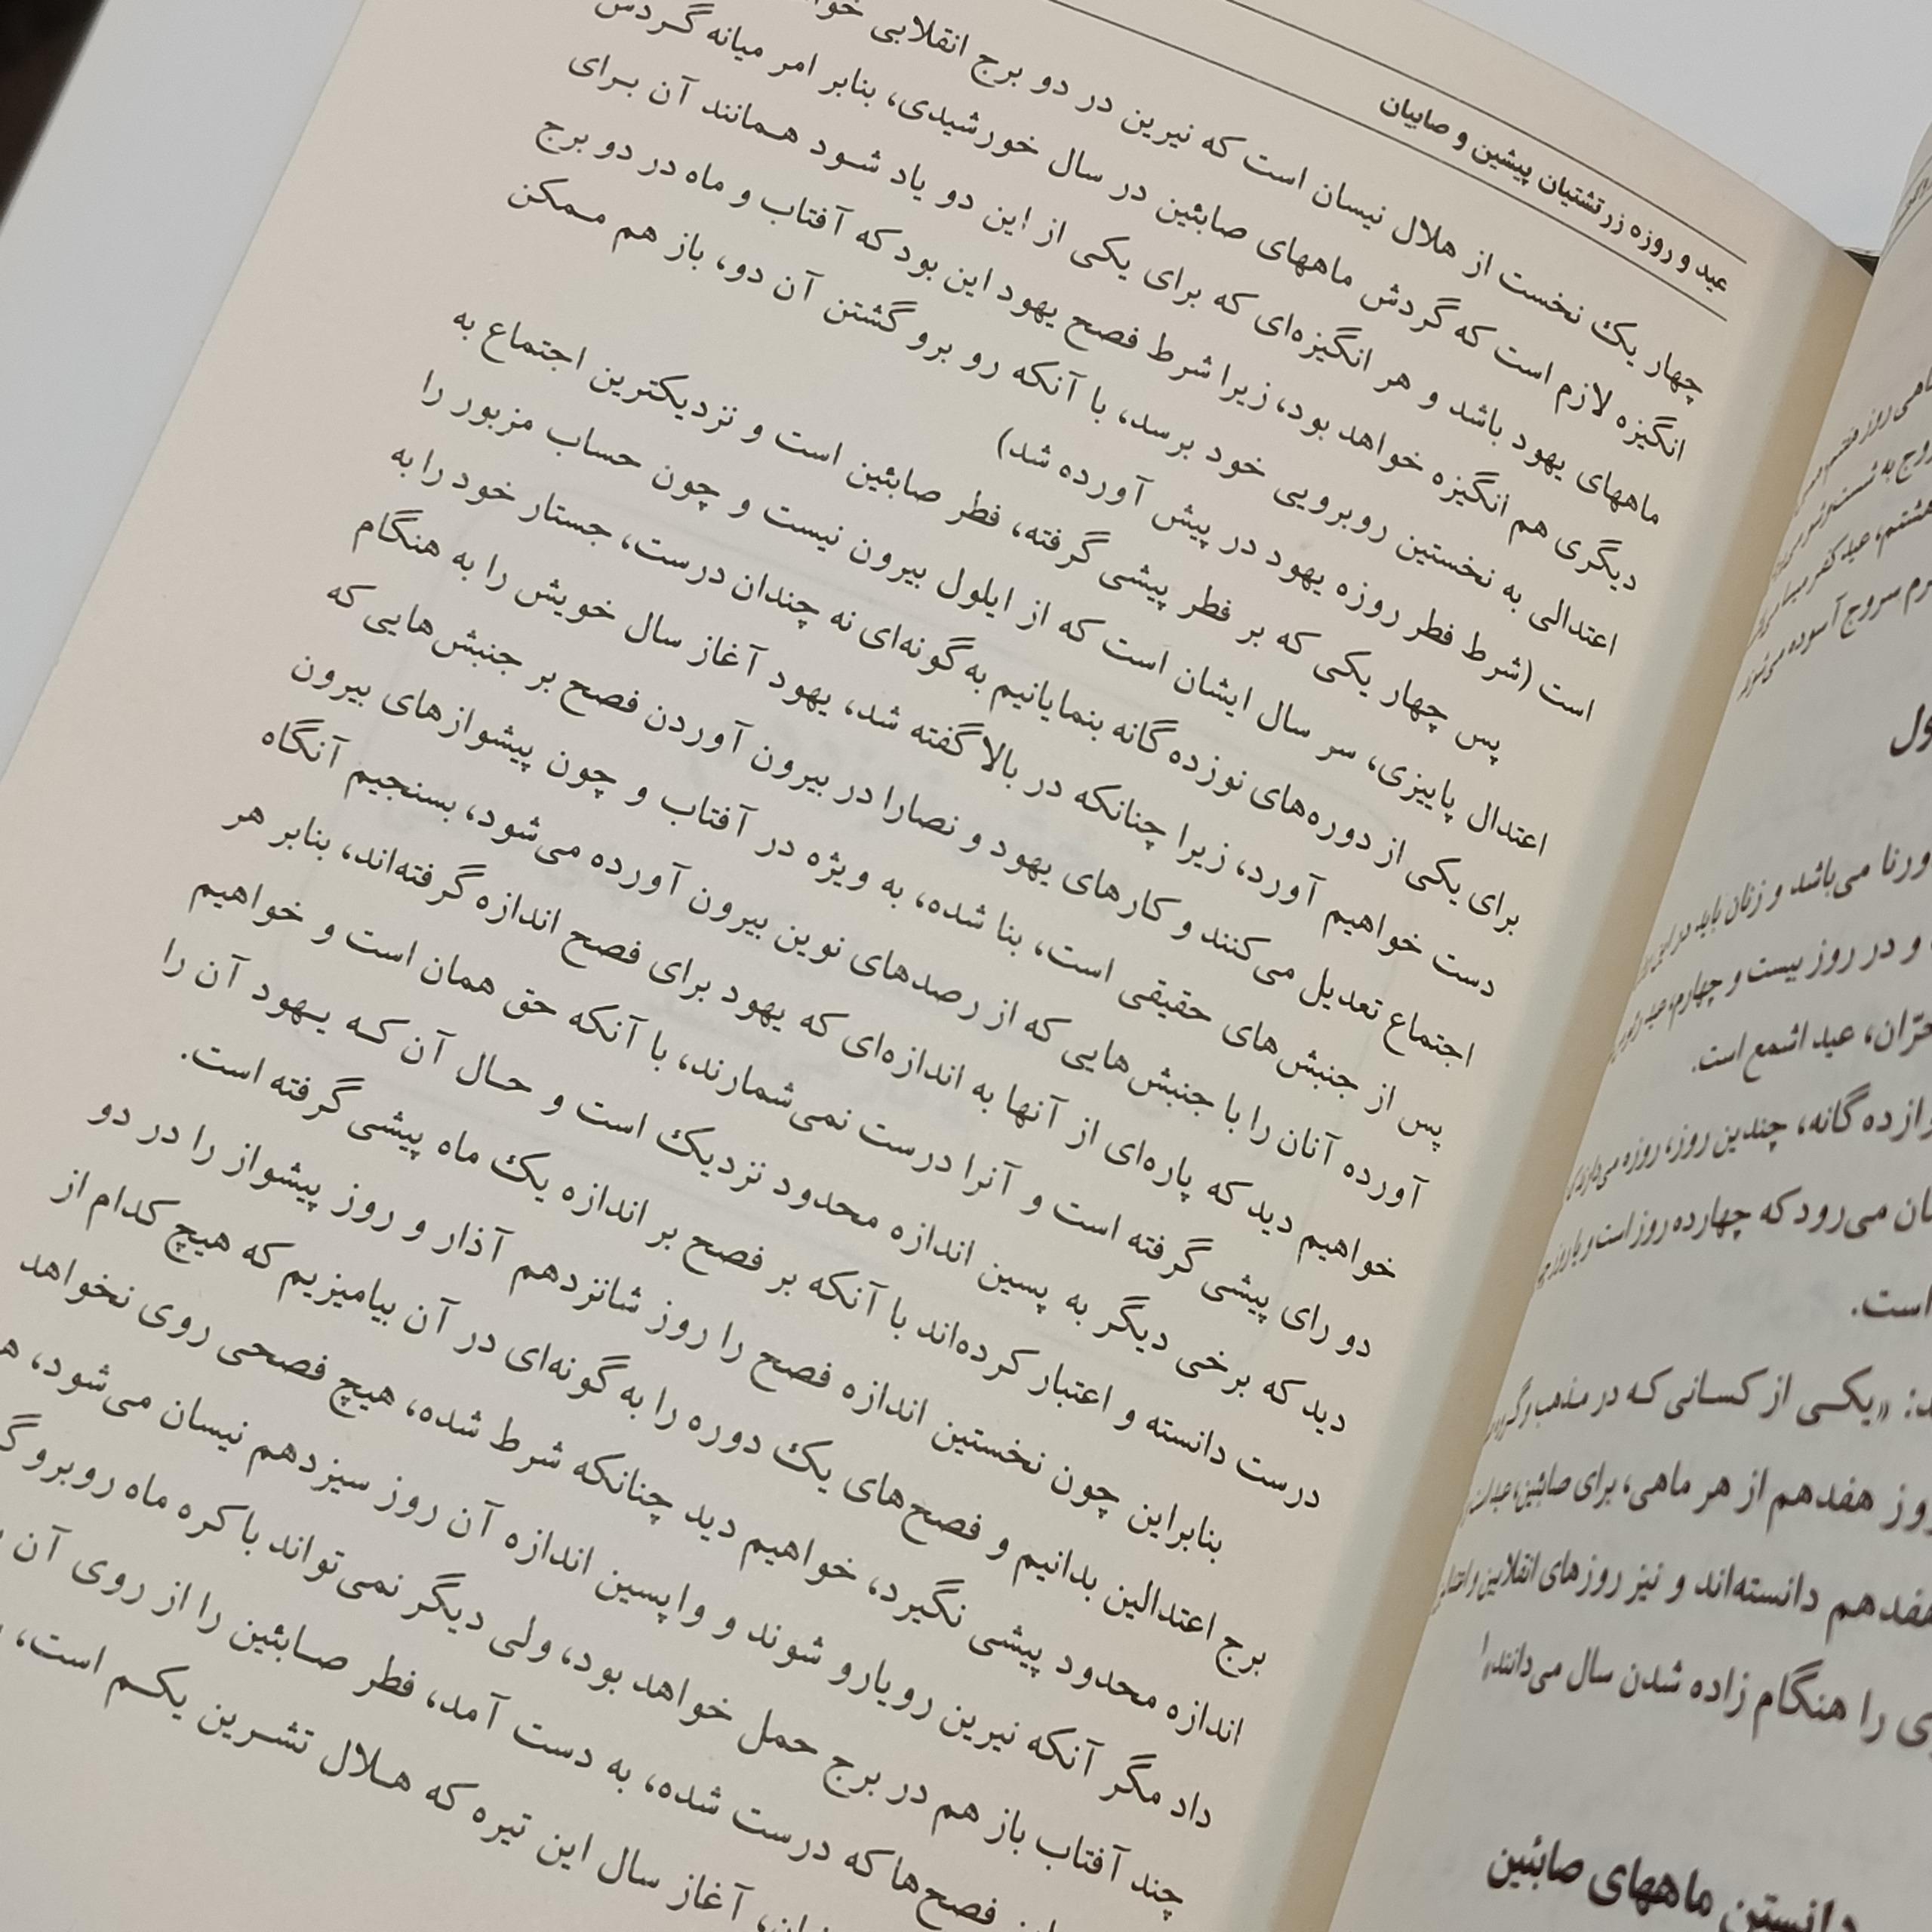 عید و روزه زرتشتیان پیشین و صابیان
چهار یک نخست از هلال نیسان است که نیرین در دو برج انقلابی
انگیزه لازم است که گردش ماههای صابئین در سال خورشیدی، بنابر امر میانه گردش
ماههای یهود باشد و هر انگیزه‌ای که برای یکی از این دو یاد شود همانند آن برای
دیگری هم انگیزه خواهد بود، زیرا شرط فصح یهود این بود که آفتاب و ماه در دو برج
اعتدالی به نخستین روبرویی خود برسد، با آنکه رو برو گشتن آن دو، باز هم ممکن
است (شرط فطر روزه یهود در پیش آورده شد)
پس چهار یکی که بر فطر پیشی گرفته، فطر صابئین است و نزدیکترین اجتماع به
اعتدال پاییزی، سر سال ایشان است که از ایلول بیرون نیست و چون حساب مزبور را
برای یکی از دوره‌های نوزده گانه بنمایانیم به گونه‌ای نه چندان درست، جستار خود را به
دست خواهیم آورد، زیرا چنانکه در بالا گفته شد، یهود آغاز سال خویش را به هنگام
اجتماع تعدیل می‌کنند و کارهای یهود و نصارا در بیرون آوردن فصح بر جنبش‌هایی که
پس از جنبش‌های حقیقی است، بنا شده، به ویژه در آفتاب و چون پیشوازهای بیرون
آورده آنان را با جنبش‌هایی که از رصدهای نوین بیرون آورده می‌شود، بسنجیم آنگاه
خواهیم دید که پاره‌ای از آنها به اندازه‌ای که یهود برای فصح اندازه گرفته‌اند، بنابر هر
دو رای پیشی گرفته است و آنرا درست نمی‌شمارند، با آنکه حق همان است و خواهیم
دید که برخی دیگر به پسین اندازه محدود نزدیک است و حال آن که یهود آن را
درست دانسته و اعتبار کرده‌اند با آنکه بر فصح بر اندازه یک ماه پیشی گرفته است.
بنابراین چون نخستین اندازه فصح را روز شانزدهم آذار و روز پیشواز را در دو
برج اعتدالین بدانیم و فصح‌های یک دوره را به گونه‌ای در آن بیامیزیم که هیچ کدام از
اندازه محدود پیشی نگیرد، خواهیم دید چنانکه شرط شده، هیچ فصحی روی نخواهد
داد مگر آنکه نیرین رویارو شوند و واپسین اندازه آن روز سیزدهم نیسان می‌شود،
چند آفتاب باز هم در برج حمل خواهد بود، ولی دیگر نمی‌تواند با کره ماه روبرو
فصح‌ها که درست شده، به دست آمد، فطر صابئین را از روی آن
آغاز سال این تیره که هلال تشرین یکم است،
ورنا می‌باشد و زنان باید در این
و در روز بیست و چهارم، عید
عید اشمع است.
گانه، چندین روز، روزه می‌دارند
می‌رود که چهارده روز است و
است.
«یکی از کسانی که در مذهب
روز هفدهم از هر ماهی، برای صابئین، عید است
هفدهم دانسته‌اند و نیز روزهای انقلابین و
را هنگام زاده شدن سال می‌دانند»
دانستن ماههای صابئین